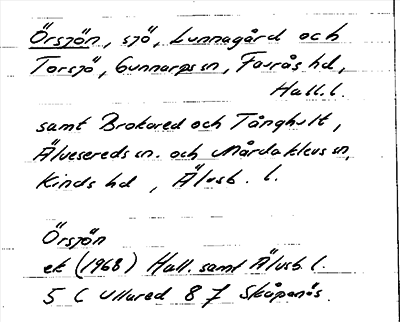 Örsjön, sjö, Lunnagård och
Torsjö, Gunnarps sn, Faurås hd,
Hall. l.
samt Brokared och Tånghult,
Älvsereds sn. och Mårdaklevs sn,
Kinds hd, Älvsb. l.
Örsjön
ek (1968) Hall. samt Älvsb. l.
5 C Ullared 8 f Skåpanäs.